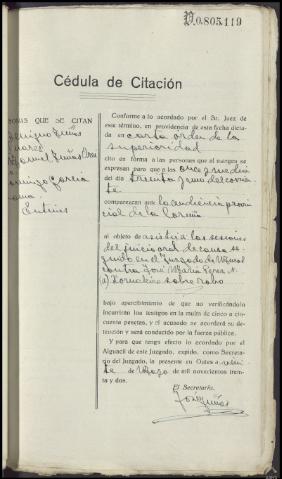 D.0.805,119
Cédula de Citación
ONAS QUE SE CITAN
García
Entines
Conforme a lo acordado por el Sr. Juez de
este término, en providencia de esta fecha dicta-
da en carta orden de la
superioridad
cito en forma a las personas que al margen se
expresan para que a las once y media
del día treinta y uno del corrien
te
comparezcan ante la audiencia provin
cial de la Coruña
al objeto de asistir a las sesiones
del juicio oral de causa se
guida en el Juzgado de
contra José María Perez
(a) sobre robo
bajo apercibimiento de que no verificándolo
incurrirán los testigos en la multa de cinco a cin-
cuenta pesetas, y el acusado se acordará su de-
tención y será conducido por la fuerza pública.
Y para que tenga efecto lo acordado por el
Alguacil de este Juzgado, expido, como Secreta-
rio del Juzgado, la presente en Outes a
te de Mayo de mil novecientos trein-
ta y dos.
El Secretario,